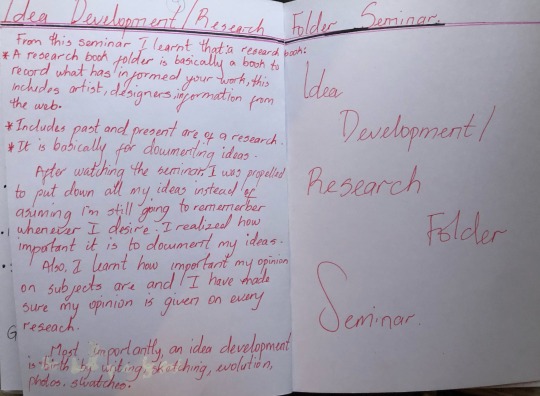 Idea Development/Research Folder Seminar.
From this seminar I learnt that a research book:
* A research book folder is basically a book to
record what has informed your work, this
includes artist, designers, information from
the web.
* Includes past and present are of a research.
* It is basically for documenting ideas.
After watching the seminar I was propelled
to put down all my ideas instead of
asuming i'm still going to rememerber
whenever I desire. I realized how
important it is to document my ideas.
Also, I learnt how important my opinion
on subjects are and I have made
sure my opinion is given on every
reseach.
Most importantly, an idea development
is birth by writing, sketching, evolution,
photos, swatches.
Idea
Development/
Research
Folder
Seminar.